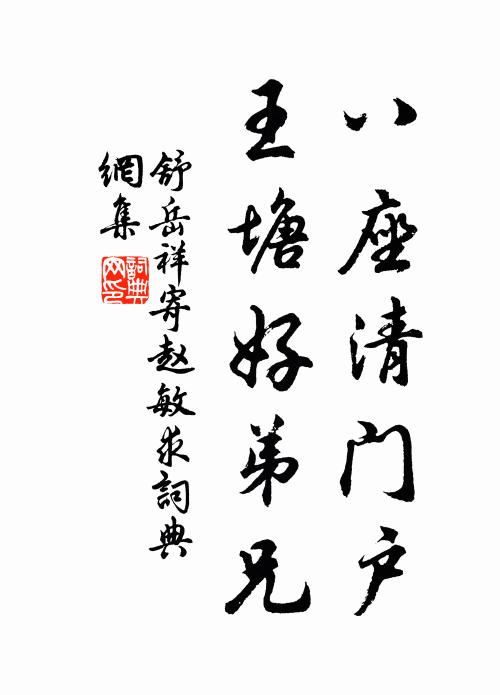 八座清门户
王塘好弟兄
舒岳祥寄赵敏求詞典
網集
詞典網印